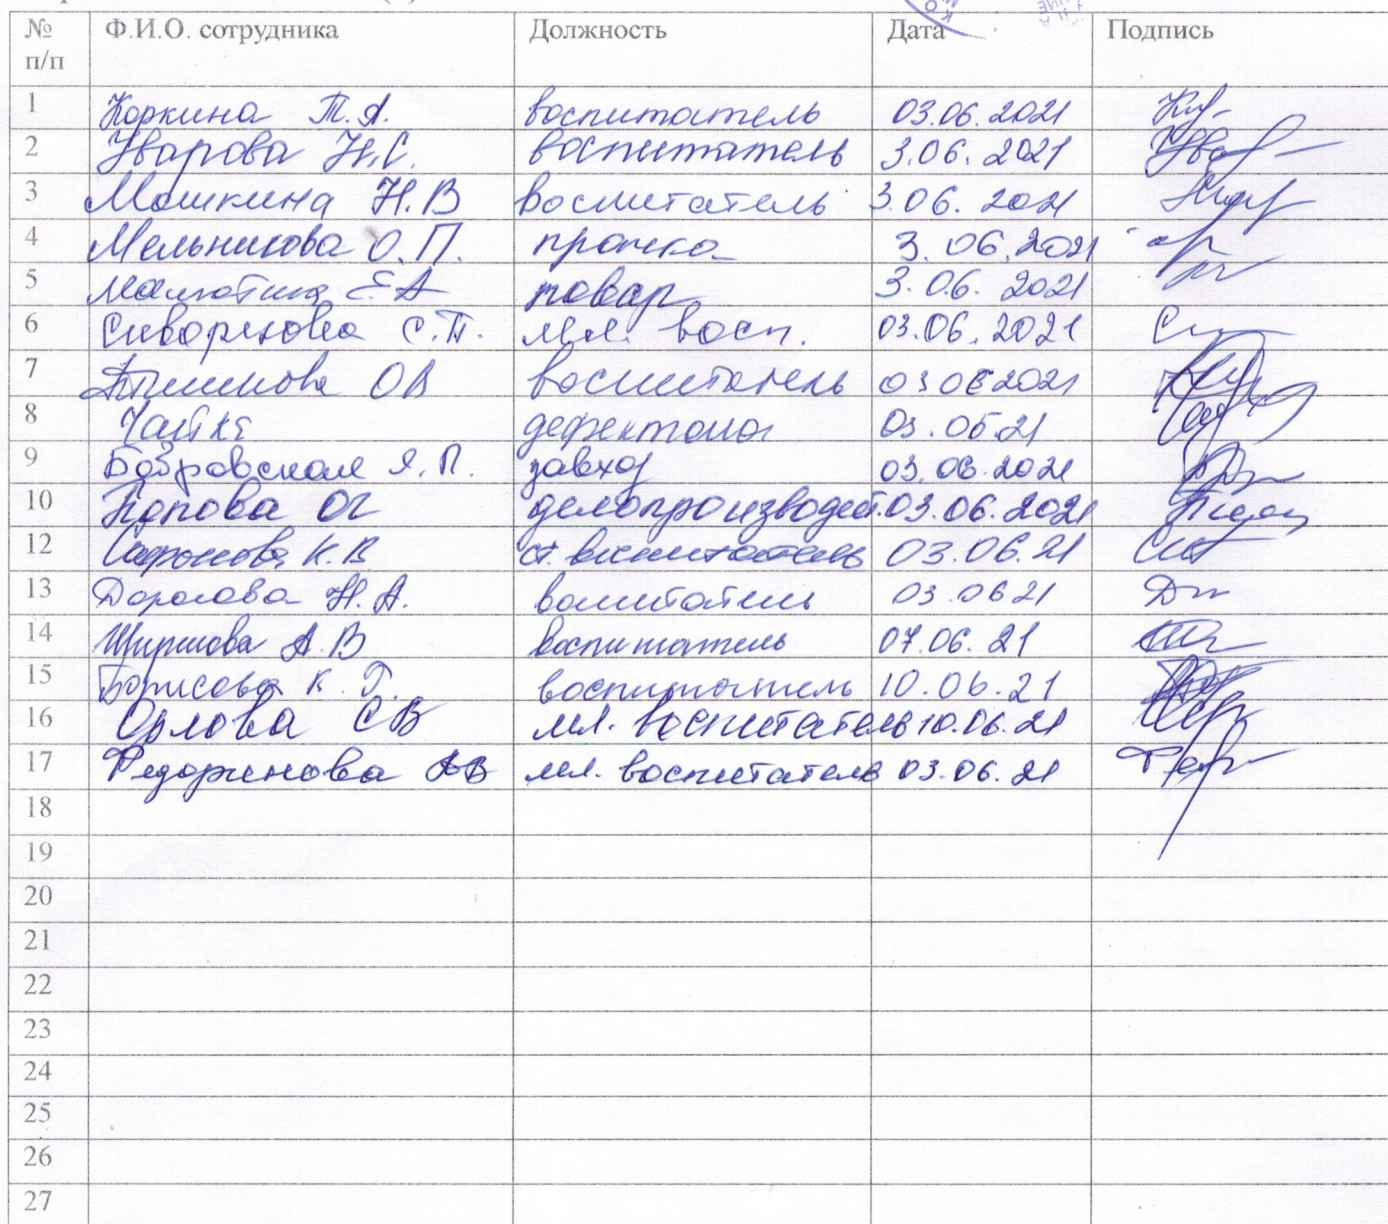 № Ф.И.О. сотрудника Должность Дата Подпись
п/п
1 Коркина Т.А. воспитатель 03.06.2021
2 Уварова Н.С. воспитатель 3.06.2021
3 Мошкина Н.В воспитатель 3.06.2021
4 Мельникова О.П. прачка 3.06.2021
5 Е А повар 3.06.2021
6 С.Т. мл. восп. 03.06.2021
7 ОВ воспитатель 03 06 2021
8 дефектолог 03.06.21
9 Бобровская Я.П. завхоз 03.06.2021
10 Попова ОГ делопроизводит. 03.06.2021
12 Сафонова К.В. ст. воспитатель 03.06.21
13 Н.А. воспитатель 03.06 21
14 А.В воспитатель 07.06.21
15 Борисова К.Г. воспитатель 10.06.21
16 Орлова СВ мл. воспитатель 10.06.21
17 Федоринова АВ мл. воспитатель 03.06.21
18
19
20
21
22
23
24
25
26
27